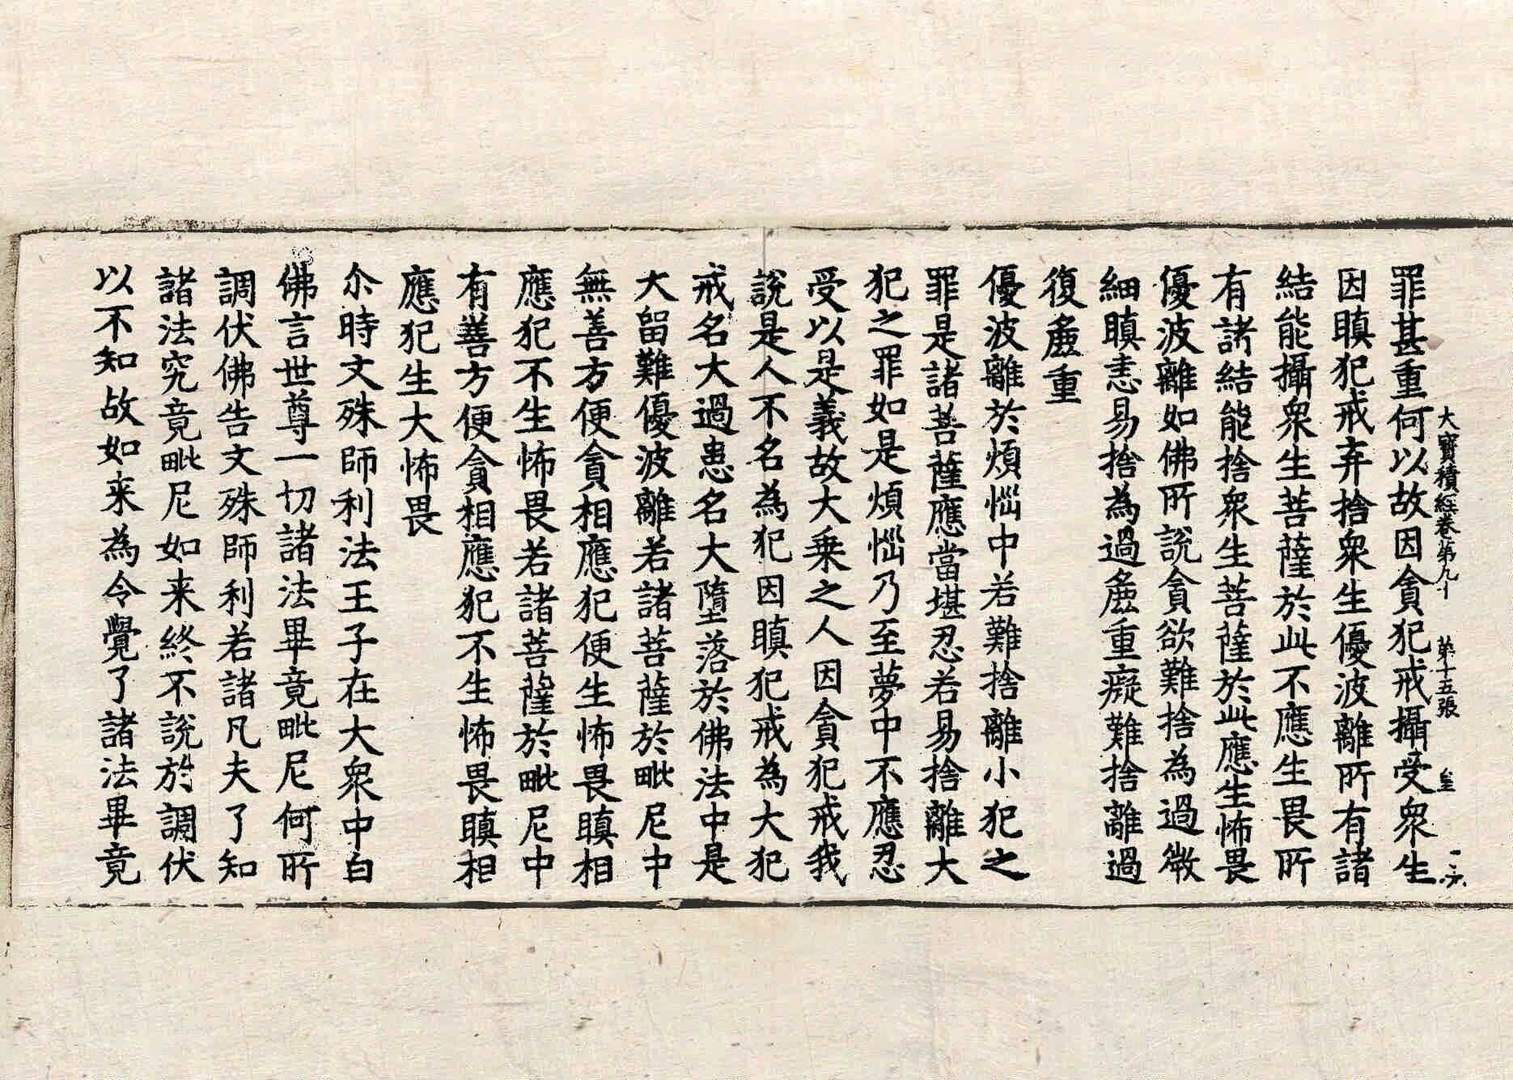 大寶積經卷第九十 第十五張 皇
罪甚重何以故因貪犯戒攝受衆生
因瞋犯戒弃捨衆生優波離所有諸
結能攝衆生菩薩於此不應生畏所
有諸結能捨衆生菩薩於此應生怖畏
優波離如佛所說貪欲難捨為過微
細瞋恚易捨為過麁重癡難捨離過
復麁重
優波離於煩惱中若難捨離小犯之
罪是諸菩薩應當堪忍若易捨離大
犯之罪如是煩惱乃至夢中不應忍
受以是義故大乘之人因貪犯戒我
說是人不名為犯因瞋犯戒為大犯
戒名大過患名大墮落於佛法中是
大留難優波離若諸菩薩於毗尼中
無善方便貪相應犯便生怖畏瞋相
應犯不生怖畏若諸菩薩於毗尼中
有善方便貪相應犯不生怖畏瞋相
應犯生大怖畏
尒時文殊師利法王子在大衆中白
佛言世尊一切諸法畢竟毗尼何所
調伏佛告文殊師利若諸凡夫了知
諸法究竟毗尼如来終不說於調伏
以不知故如来為令覺了諸法畢竟